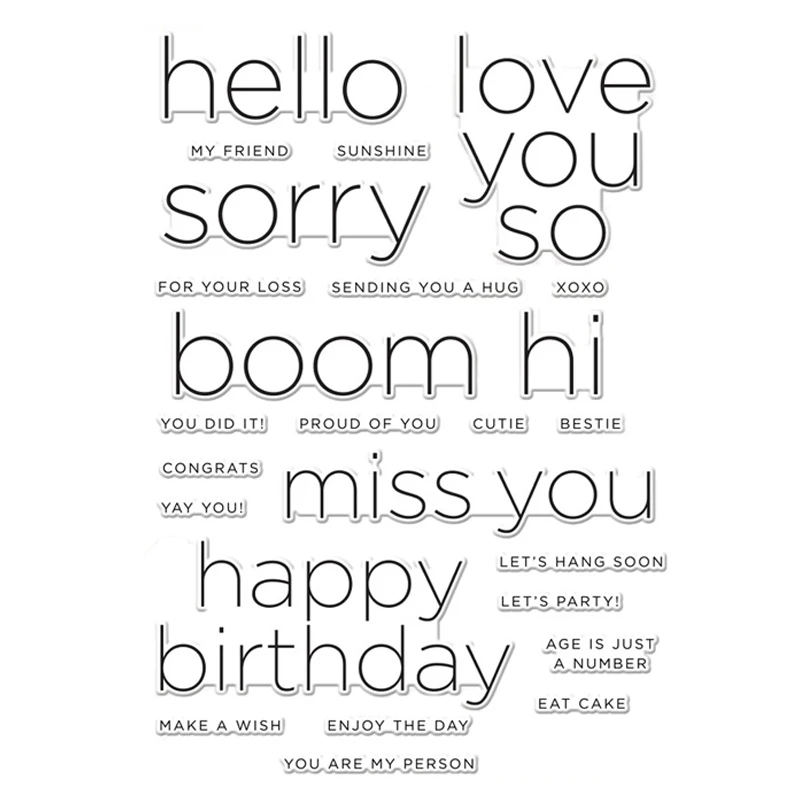 hello
love
you
so
MY FRIEND
SUNSHINE
sorry
FOR YOUR LOSS
SENDING YOU A HUG
XOXO
boom
hi
YOU DID IT!
PROUD OF YOU
CUTIE
BESTIE
CONGRATS
YAY YOU!
miss you
happy
birthday
LET'S HANG SOON
LET'S PARTY!
AGE IS JUST
A NUMBER
EAT CAKE
MAKE A WISH
ENJOY THE DAY
YOU ARE MY PERSON